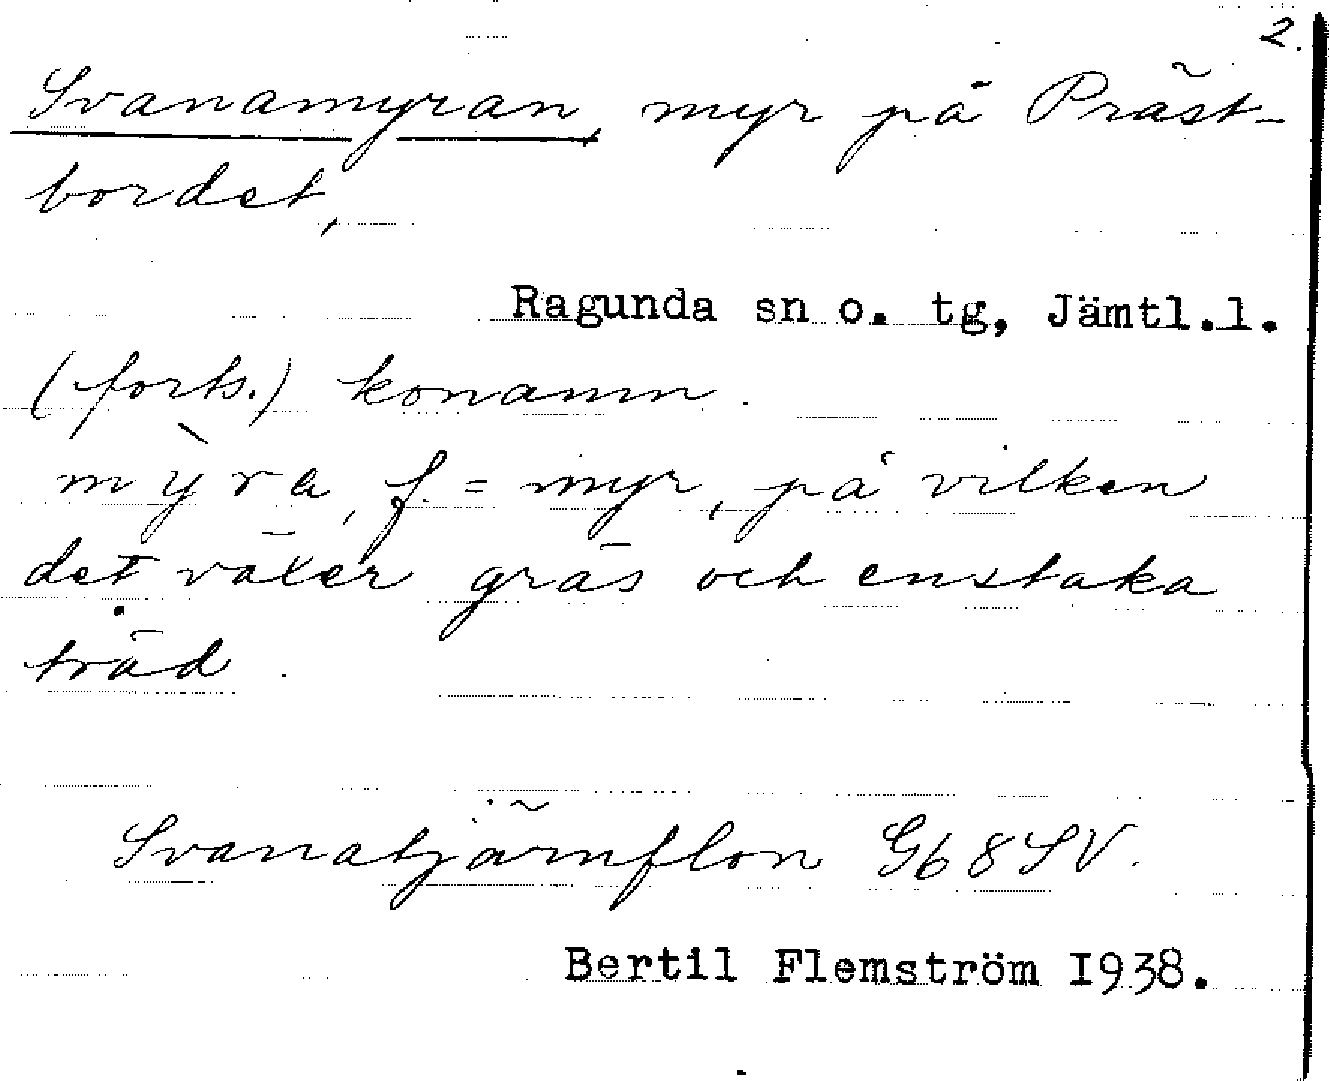 2.
Svanamyran, myr på Präst-
bordet,
Ragunda sn o. tg, Jämtl.l.
(forts.) konamn.
mỳra, f. = myr, på vilken
det växer gräs och enstaka
träd.
Svanatjärnflon G68SV.
Bertil Flemström I938.